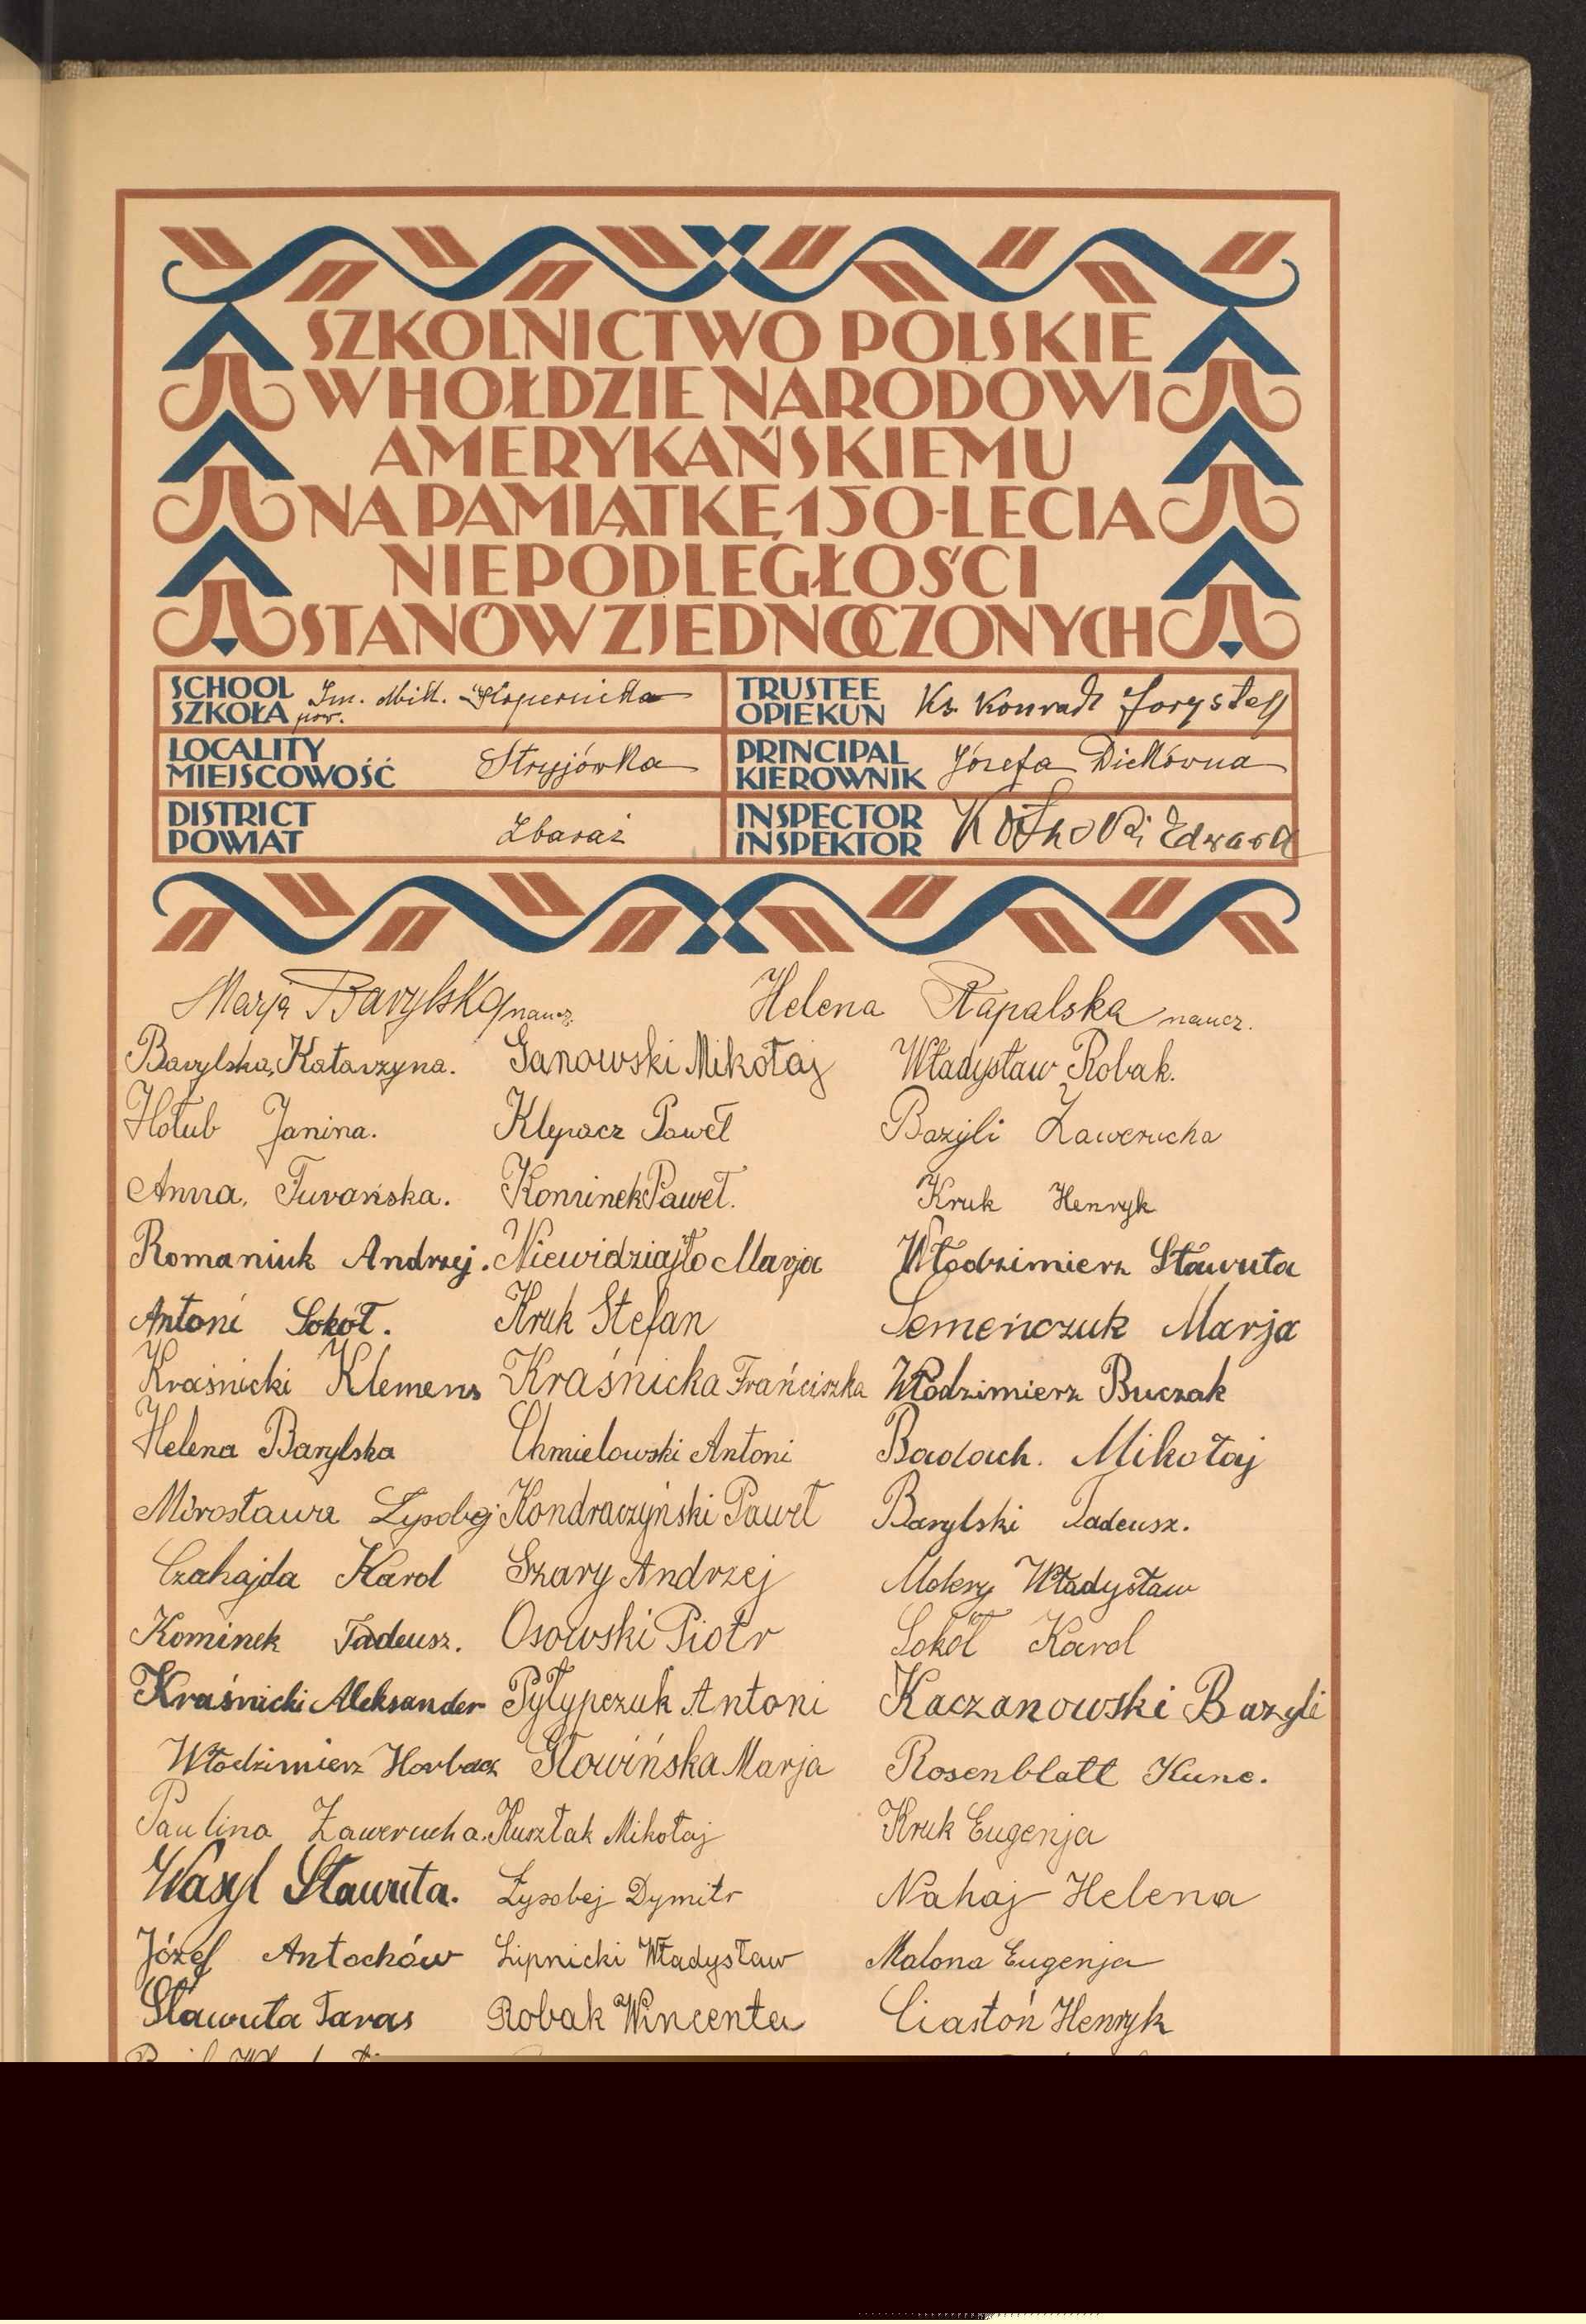 SZKOLNICTWO POLSKIE
W HOŁDZIE NARODOWI
AMERYKAŃSKIEMU
NA PAMIĄTKĘ 150-LECIA
NIEPODLEGŁOŚCI
STANÓW ZJEDNOCZONYCH
SCHOOL
SZKOŁA
Im. Mik. Kopernika
pow.
TRUSTEE
OPIEKUN
Ks. Konrad
LOCALITY
MIEJSCOWOŚĆ
Stryjówka
PRINCIPAL
KIEROWNIK
Józefa Dickówna
DISTRICT
POWIAT
Zbaraż
INSPECTOR
INSPEKTOR
Edward
Marja Barylska naucz.
Helena Rapalska naucz.
Barylska, Katarzyna. Janowski Mikołaj Władysław Robak.
Hołub Janina. Klepacz Paweł Bazyli Zawerucha
Anna, Turańska. Kominek Paweł. Kruk Henryk
Romaniuk Andrzej. Niewidziajło Marja Włodzimierz Sławuta
Antoni Sokół. Kruk Stefan Semeńczuk Marja
Kraśnicki Klemens Kraśnicka Frańciszka Włodzimierz Buczak
Helena Barylska Chmielowski Antoni Badach. Mikołaj
Mirosława Łysobej Kondraczyński Paweł Barylski Tadeusz.
Czahajda Karol Szary Andrzej Mokry Władysław
Kominek Tadeusz. Osowski Piotr Sokół Karol
Kraśnicki Aleksander Pyłypczuk Antoni Kaczanowski Bazyli
Włodzimierz Horbacz Słowińska Marja Rosenblatt Kune.
Paulina Zawerucha. Kusztak Mikołaj Kruk Eugenja
Wasyl Sławuta. Łysobej Dymitr Nahaj Helena
Józef Antochów Lipnicki Władysław Malona Eugenja
Sławuta Taras Robak Wincenta Ciastoń Henryk